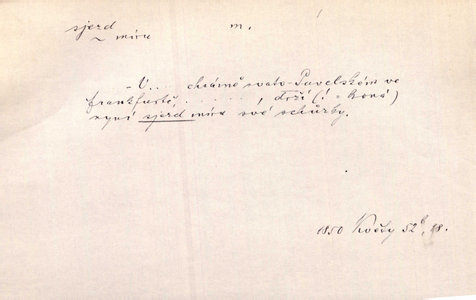 sjezd m.
~ míru
„V... chrámě svato-Pavelském ve
Frankfurtě, . . . . . , drží (! = koná)
nyní sjezd míru své schůzky.
1850 Květy 52b, 18.